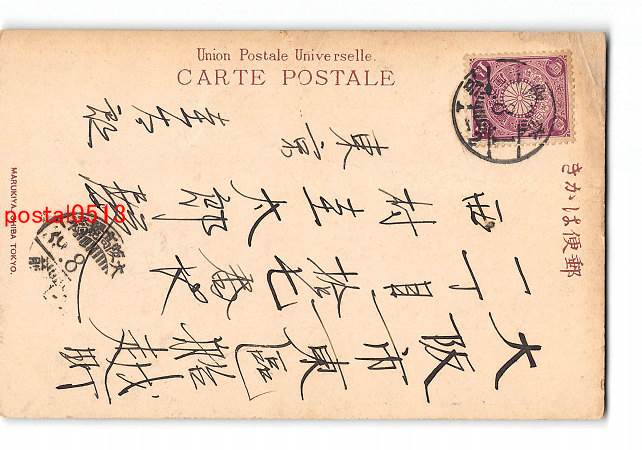 Union Postale Universelle.
CARTE POSTALE
きかは便郵
大阪市東區船越町
一丁目拾七番地
西村圭太郎様
東京
MARUKIYA, SHIBA TOKYO.
postal0513